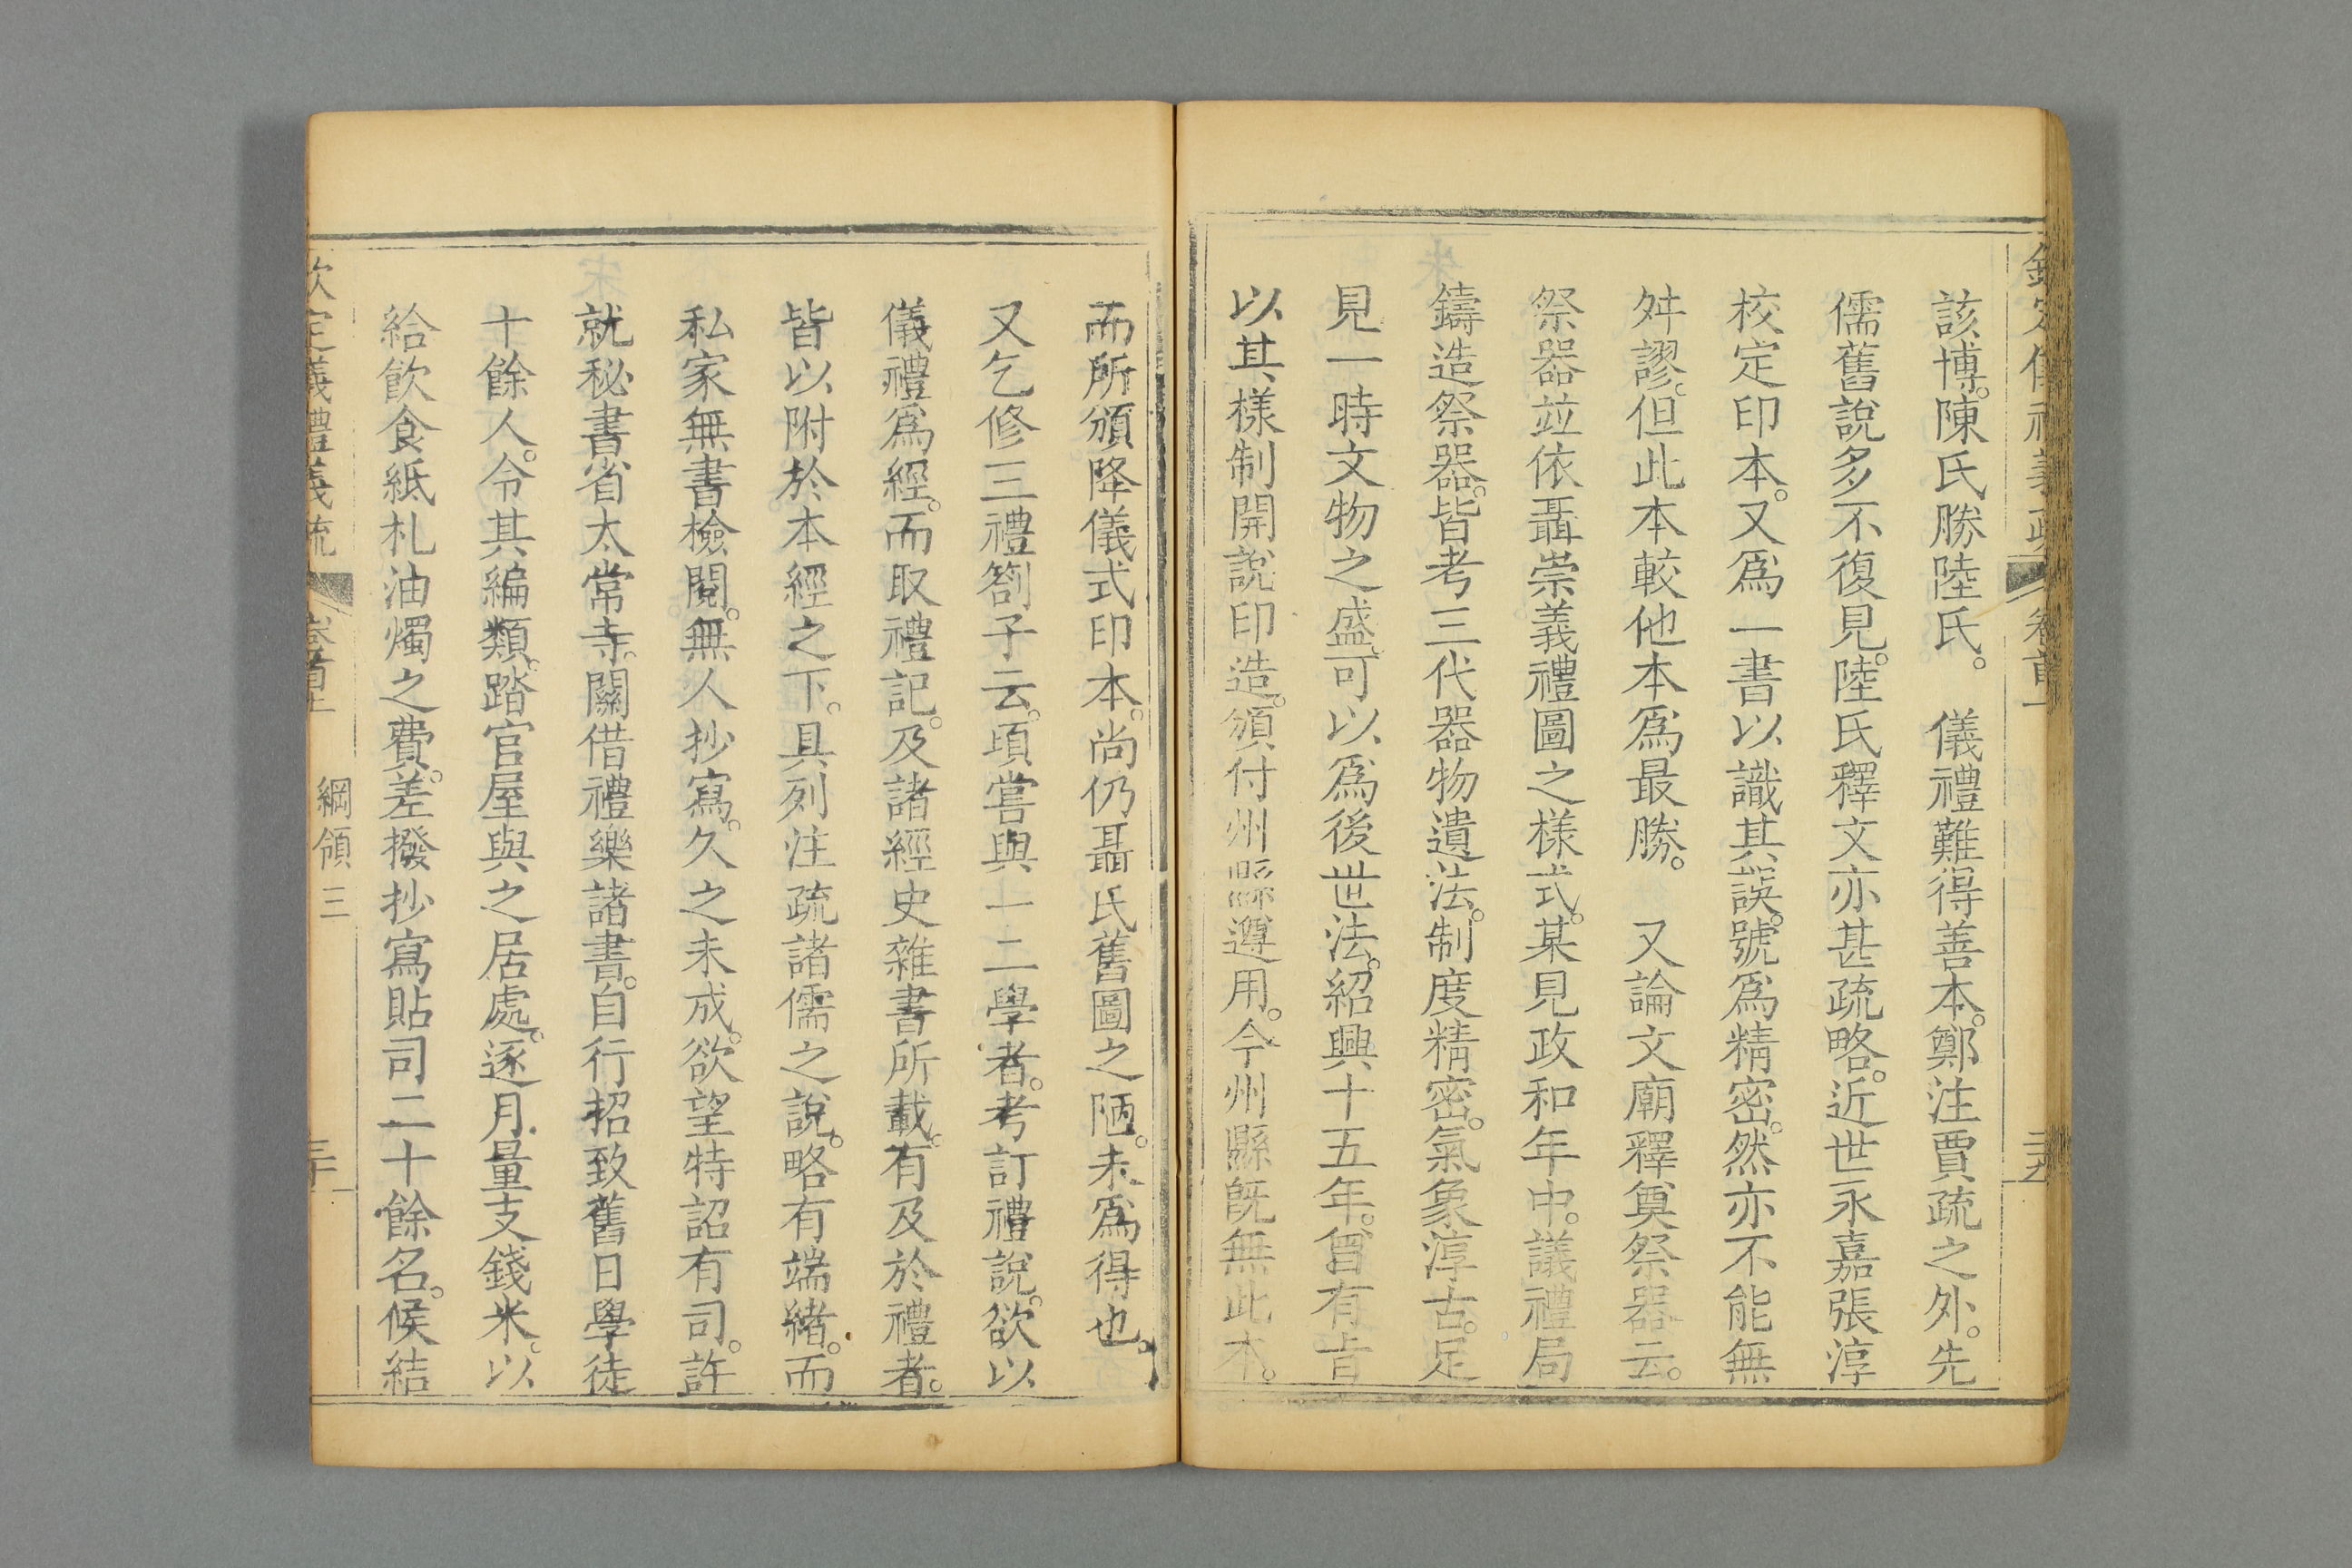 該博。陳氏勝陸氏。　儀禮難得善本。鄭注賈疏之外。先
儒舊說多不復見。陸氏釋文亦甚疏略。近世永嘉張淳
校定印本。又爲一書以識其誤。號爲精密。然亦不能無
舛謬。但此本較他本爲最勝。　又論文廟釋奠祭器云。
祭器竝依聶崇義禮圖之樣式。某見政和年中。議禮局
鑄造祭器。皆考三代器物遺法。制度精密。氣象淳古。足
見一時文物之盛。可以爲後世法。紹興十五年。曾有旨
以其樣制開說印造。頒付州縣遵用。今州縣旣無此本。
而所頒降儀式印本。尚仍聶氏舊圖之陋。未爲得也。
又乞修三禮劄子云。頃嘗與一二學者。考訂禮說。欲以
儀禮爲經。而取禮記。及諸經史雜書所載。有及於禮者。
皆以附於本經之下。具列注疏諸儒之說。略有端緒。而
私家無書檢閱。無人抄寫。久之未成。欲望特詔有司。許
就秘書省太常寺。關借禮樂諸書。自行招致舊日學徒
十餘人。令其編類。踏官屋與之居處。逐月量支錢米。以
給飲食紙札油燭之費。差撥抄寫貼司二十餘名。候結
欽定義禮義疏　卷首上　綱領三　三十